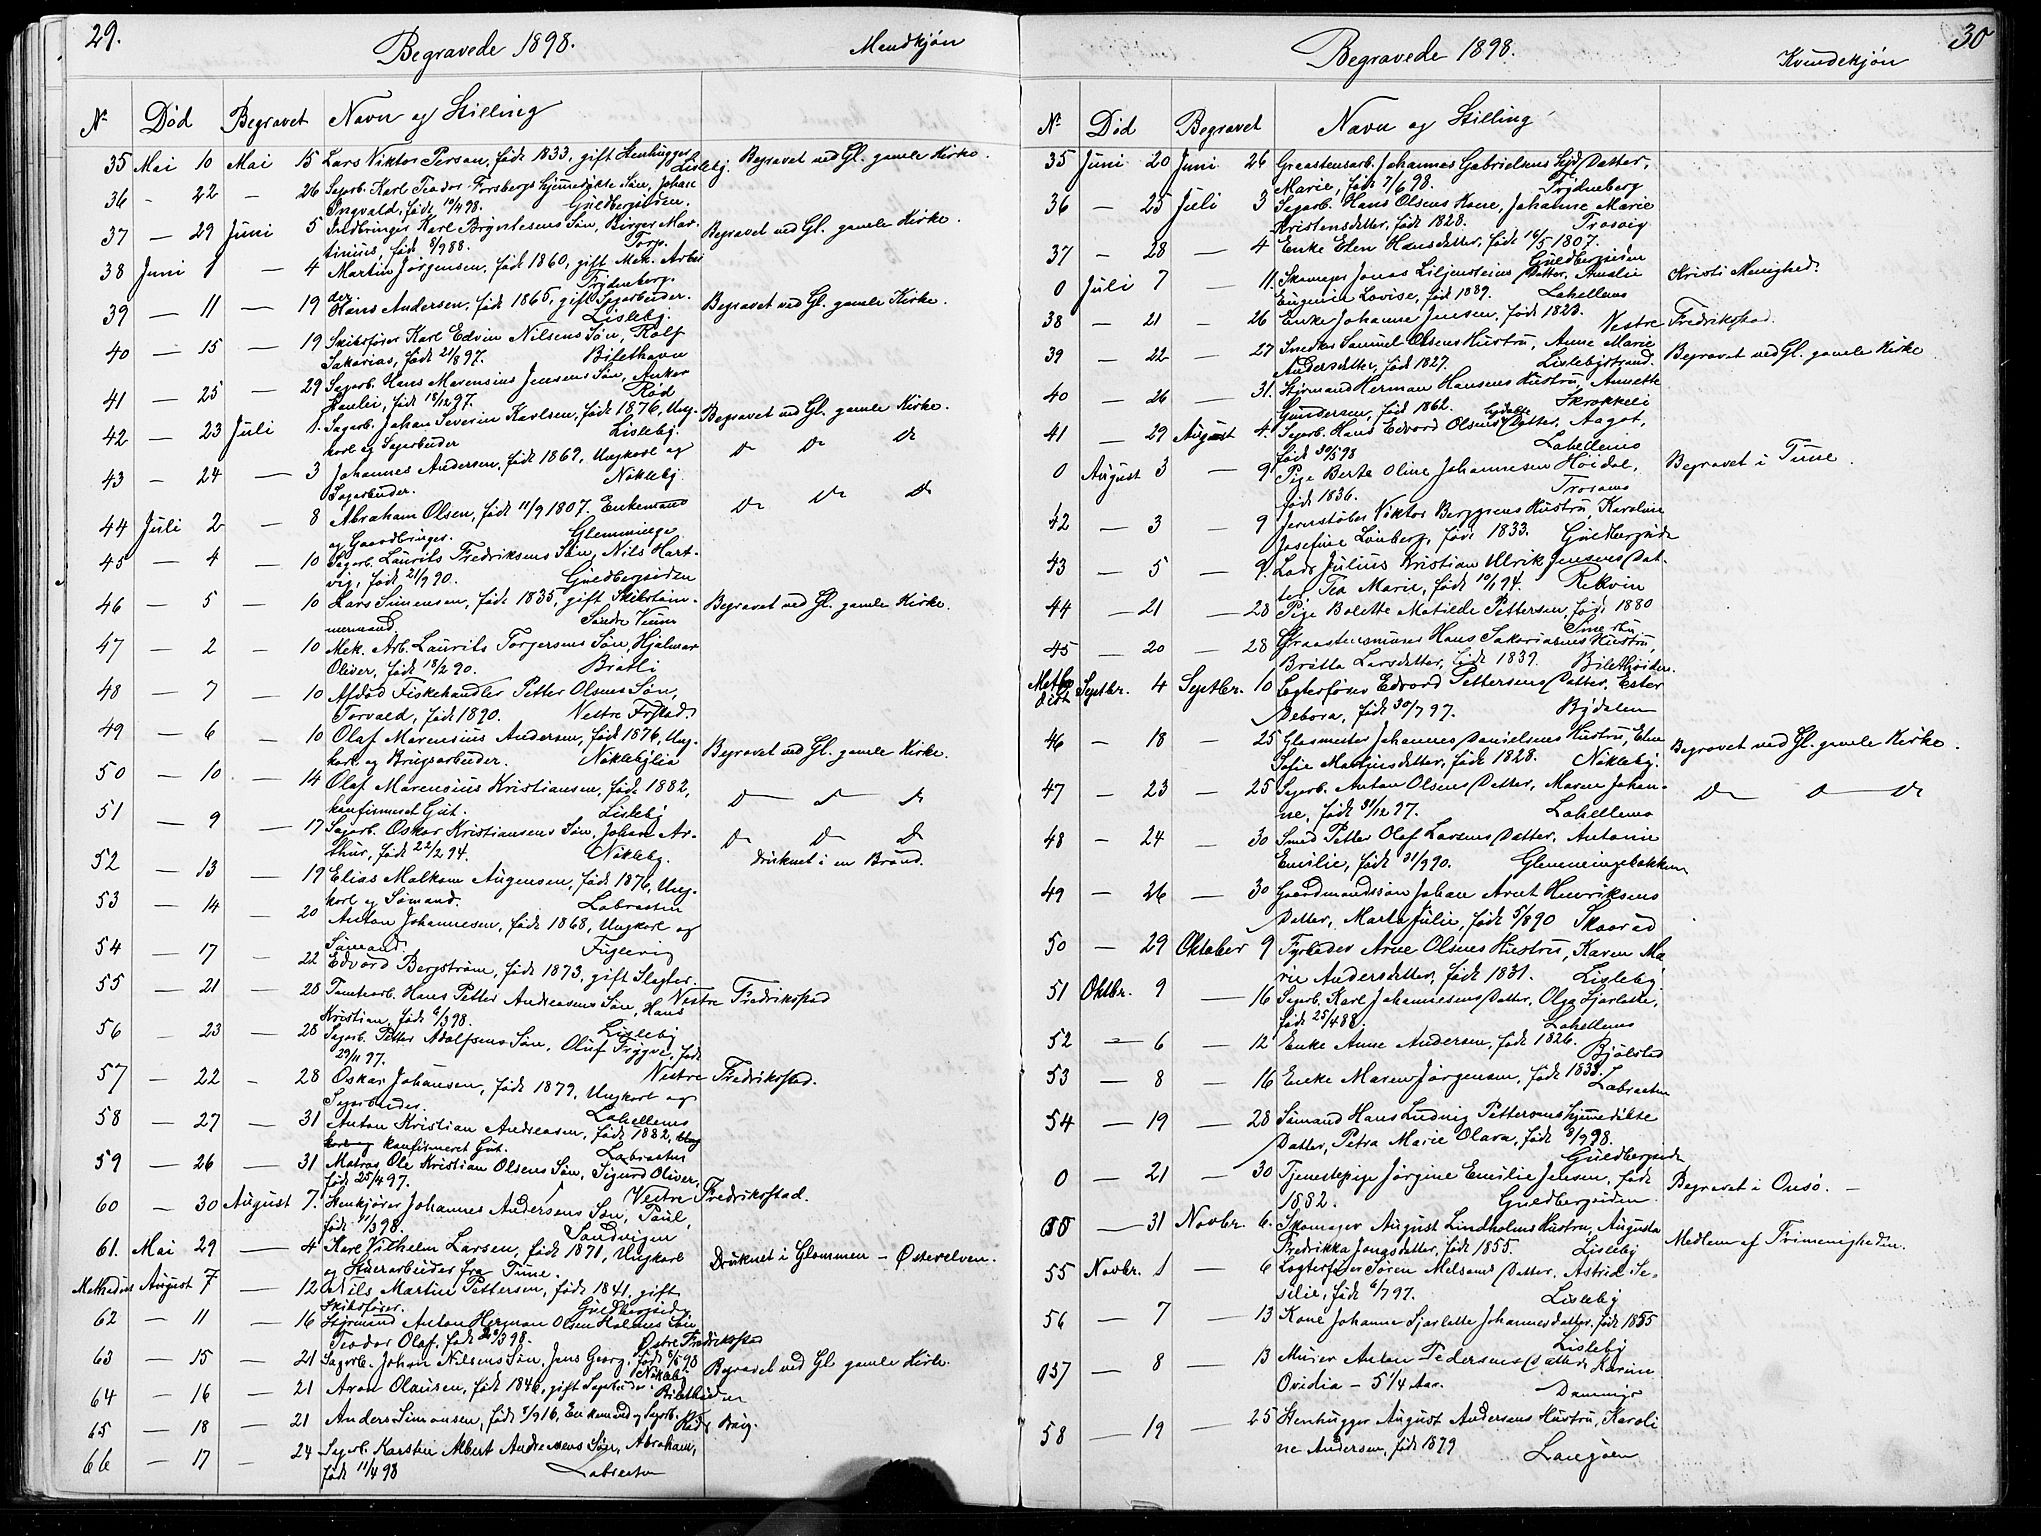 29.
Begravede 1898.
Mendkjøn
No Død Begravet Navn og Stilling
35 Mai 10 Mai 15 Lars Viktor Person, født 1833, gift Stenhugger Lisleby. Begravet ved Gl. gamle Kirke.
36 - 22 - 26 Sagarb. Karl Teodor Forsbergs hjemmedøbte Søn, Johan
Ingvald, født 10/4 98. Guldbergsiden.
37 - 29 Juni 5 Karl Søn, Birger Mar- Begravet ved Gl. gamle Kirke.
tinius, født 8/9 88. Torp.
38 Juni 1 - 4 Martin Jørgensen, født 1860, gift Mek. Arbei
der. Trydenberg.
39 - 11 - 19 Hans Andersen, født 1865, gift Sagarbeider. Begravet ved Gl. gamle Kirke.
Lisleby.
40 - 15 - 19 Skibsfører Karl Edvin Nilsens Søn, Rolf
Sakarias, født 21/8 97.
41 - 25 - 29 Sagarb. Hans Marensius Jensens Søn, Anker
født 18/12 97. Rød
42 - 23 Juli 1. Sagarb. Johan Severin Karlsen, født 1876, Ung- Begravet ved Gl. gamle Kirke.
karl og Sagarbeider Lisleby.
43 - 24 - 3 Johannes Andersen, født 1869, Ungkarl og Do Do Do
Sagarbeider. Nøkleby.
44 Juli 2 - 8 Abraham Olsen, født 11/9 1807. Enkemand Do Do Do
og Gaardbruger. Glemminge
45 - 4 - 10 Sagarb. Laurits Fredriksens Søn, Nils Hart-
vig, født 21/9 90. Guldbergsiden
46 - 5 - 10 Lars Simensen, født 1835, gift Skibstøm- Begravet ved Gl. gamle Kirke.
mermand Søndre
47 - 2 - 10 Mek. Arb. Laurits Torgersens Søn, Hjalmar
Oliver, født 18/2 90. Bratli
48 - 7 - 10 Afdød Fiskehandler Petter Olsens Søn,
Torvald, født 1890. Vestre Frstad.
49 - 6 - 10 Olaf Marensius Andersen, født 1876, Ung-
karl og Brugsarbeider. Nøklebylia Begravet ved Gl. gamle Kirke.
50 - 10 - 14 Olaf Marensius Kristiansen, født 1882,
konfirmeret Gut. Lisleby Do Do Do
51 - 9 - 17 Sagarb. Oskar Kristiansens Søn, Johan Ar-
thur, født 22/2 94. Nøkleby. Do Do Do
druknet i en Brønd.
52 - 13 - 19 Elias Malkom Augensen, født 1876, Ung-
karl og Sømand. Labraaten
53 - 14 - 20 Anton Johannesen, født 1868, Ungkarl og
Sømand. Fuglevig
54 - 17 - 22 Edvard Bergstrøm, født 1873, gift Slagter.
Vestre Fredrikstad
55 - 21 - 28 Tomtearb. Hans Petter Andreasens Søn, Hans
Kristian, født 6/3 98. Lisleby
56 - 23 - 28 Sagarb. Petter Adolfsens Søn, Oluf Trygve, født
29/11 97. Vestre Fredrikstad.
57 - 22 - 28 Oskar Johansen, født 1879, Ungkarl og
Sagarbeider. Lahellemo
58 - 27 - 31 Anton Kristian Andreasen, født 1882, Ung
karl og konfirmeret Gut. Labraaten
59 - 26 - 31 Matros Ole Kristian Olsens Søn, Sigurd Oliver,
født 25/4 97. Vestre Fredrikstad.
60 - 30 August 7. Stenkjører Johannes Andersens Søn, Paul,
født 11/3 98. Sandvigen
61. Mai 29 - 4 Karl Vilhelm Larsen, født 1871, Ungkarl Druknet i Glommen - Østerelven.
og Stuerarbeider fra Tune.
Methodist August 7 - 12 Nils Martin Pettersen, født 1841, gift
Skibsfører. Guldbergsid.
62 - 11 - 16 Styrmand Anton Herman Olsen Holmes Søn
Teodor Olaf, født 98. Østre Fredrikstad
63 - 15 - 21 Sagarb. Johan Nilsens Søn, Jens Georg, født 6/5 98 Begravet ved Gl gamle Kirke.
Nøkleby
64 - 16 - 21 Aron Olausen, født 1846, gift Sagarbeider.
65 - 18 - 21 Anders Simonsen, født 8/9 16, Enkemand og Sagarb.
66 - 17 - 24 Sagarb. Karsten Albert Andreasens Søn, Abraham,
født 11/4 98 Labraaten
30
Begravede 1898.
Kvindekjøn
No Død Begravet Navn og Stilling
35 Juni 20 Juni 26 Graastensarb. Johannes Gabrielsens hjd Datter,
Marie, født 7/6 98. Trydenberg
36 - 25 Juli 3 Sagarb. Hans Olsens Kone, Johanne Marie
Kristensdatter, født 1828. Trosvig
37 - 28 - 4 Enke Elen Hansdatter, født 16/5 1807.
Guldbergsiden
0 Juli 7 - 11. Skomager Jonas Liljensteins Datter, Amalie Kristi Menighed.
Eugenia Lovise, født 1889. Lahellemo
38 - 21 - 26 Enke Johanne Jensen, født 1823.
Vestre Fredrikstad.
39 - 22 - 27 Snedker Samuel Olsens Hustru, Anne Marie Begravet ved Gl. gamle Kirke
Andersdatter, født 1827. Lislebystrand.
40 - 26 - 31. Styrmand Herman Hansens Hustru, Annette
Gundersen, født 1862. Skrokkeli
41 - 29 August 4. Sagarb. Hans Edvard Olsens hjdøbte Datter, Aagot,
født 30/5 98 Lahellemo
0 August 3 - 9 Pige Berta Oline Johannesen Høidal, Begravet i Tune.
født 1836. Trosamo
42 - 3 - 9 Jernstøber Viktor Berggrens Hustru, Karoline
Josefine Lønberg, født 1833. Guldbergside
43 - 5 - 9. Lods Julius Kristian Ulrik Jensens Dat-
ter Tea Marie, født 10/1 94. Rekvin
44 - 21 - 28 Pige Bolette Matilde Pettersen, født 1880
Smertu
45 - 20 - 28 Graastensmurer Hans Sakariasens Hustru,
Britta Larsdatter, født 1839.
Metho dist Septbr. 4 Septbr. 10 Logterfører Edvard Pettersens Datter, Ester
Debora, født 30/7 97. Bydalen
46 - 18 - 25 Glasmester Johannes Danielsens Hustru, Elen Begravet ved Gl. gamle Kirke.
Sofie Martinsdatter, født 1828. Nøkleby.
47 - 23 - 25 Sagarb. Anton Olsens Datter, Maren Johan- Do Do Do
ne, født 31/12 97. Lahellemo
48 - 24 - 30 Smed Petter Olaf Larsens Datter, Antonie
Emilie, født 31/9 90. Glemmingebakken
49 - 26 - 30 Gaardmandssøn Johan Arnt Henriksens
Datter, Marta Julie, født 5/8 90 Skaarad
50 - 29 Oktober 9 Fyrbøder Arne Olsens Hustru, Karen Ma
rie Andersdatter, født 1831. Lisleby
51 Oktbr. 9 - 16 Sagarb. Karl Johannesens Datter, Olga Sjarlotte,
født 25/4 88. Lahellemo
52 - 6 - 12 Enke Anne Andersen, født 1826. Bjølstad
53 - 8 - 16 Enke Maren Jørgensen, født 1833. Labraaten
54 - 19 - 28 Sømand Hans Ludvig Pettersens hjemmedøbte
Datter, Petra Marie Olava, født 8/9 98.
Guldbergside
0 - 21 - 30 Tjenestepige Jørgine Emilie Jensen, født
1882. Guldbergsiden Begravet i Onsø. -
0 - 31 Novbr. 6. Skomager August Lindholms Hustru, Augusta Medlem af Frimenigheden.
Fredrikka Jonasdatter, født 1855. Lisleby
55 Novbr. 1 - 6 Logterfører Søren Melsoms Datter, Astrid Se-
silie, født 6/7 97. Lisleby
56 - 7 - 13 Kone Johanne Sjarlotte Johannesdatter, født 1855
Lisleby
57 - 8 - 13 Murer Anton Pedersens Datter Karine
Ovidia - 5 1/4 Aar. Dammyr
58 - 19 - 25 Stenhugger August Andersens Hustru, Karoli
ne Andersen, født 1879